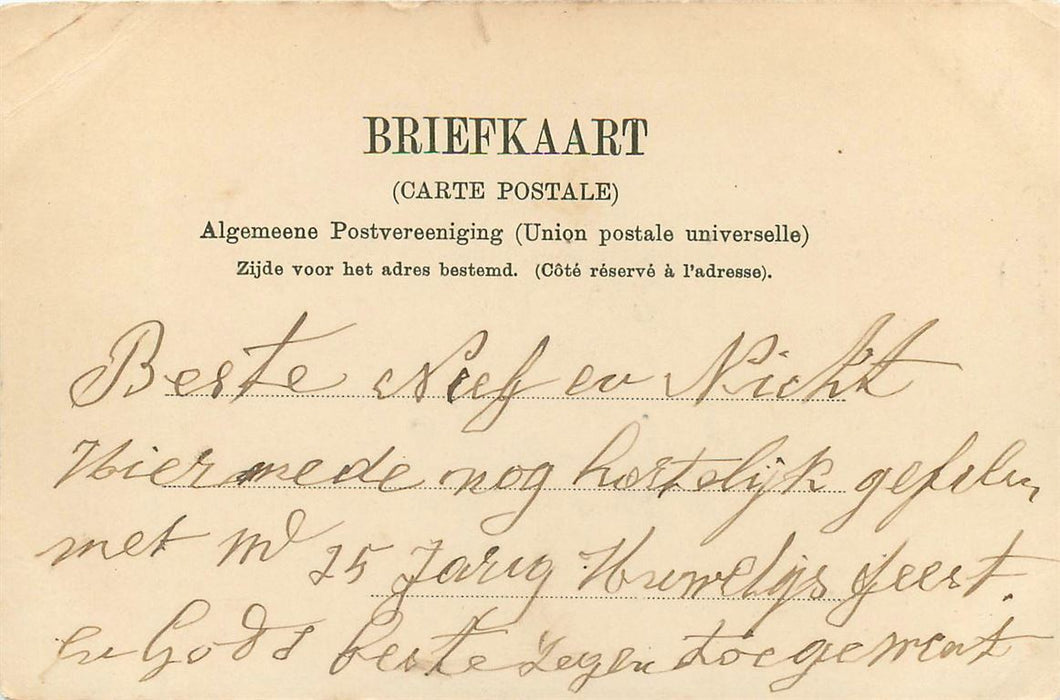 BRIEFKAART
(CARTE POSTALE)
Algemeene Postvereeniging (Union postale universelle)
Zijde voor het adres bestemd. (Côté réservé à l'adresse).
Beste Neef en Nicht
Hiermede nog hartelijk
met 25 Jarig Huwelijs feest.
en Gods beste zegen toegewent